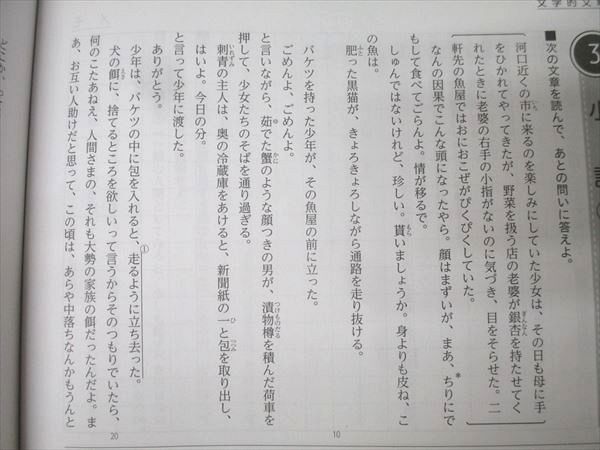 文学的文章
3
小説
■次の文章を読んで、あとの問いに答えよ。
河口近くの市に来るのを楽しみにしていた少女は、その日も母に手
をひかれてやってきたが、野菜を扱う店の老婆が銀杏を持たせてく
れたときに老婆の右手の小指がないのに気づき、目をそらせた。二
軒先の魚屋ではおにおこぜがぴくぴくしていた。
なんの因果でこんな頭になったやら。顔はまずいが、まあ、ちりにで
もして食べてごらんよ。情が移るで。
しゅんではないけれど、珍しい。貰いましょうか。身よりも皮ね、こ
の魚は。
肥った黒猫が、きょろきょろしながら通路を走り抜ける。
バケツを持った少年が、その魚屋の前に立った。
ごめんよ、ごめんよ。
と言いながら、茹でた蟹のような顔つきの男が、漬物樽を積んだ荷車を
押して、少女たちのそばを通り過ぎる。
刺青の主人は、奥の冷蔵庫をあけると、新聞紙の一と包を取り出し、
はいよ。今日の分。
と言って少年に渡した。
ありがとう。
少年は、バケツの中に包を入れると、①走るように立ち去った。
犬の餌に、捨てるところを欲しいって言うからそのつもりでいたら、
何のこたあねえ、人間さまの、それも大勢の家族の餌だったんだよ。ま
あ、お互い人助けだと思って、この頃は、あらや中落ちなんかもうんと
10
20